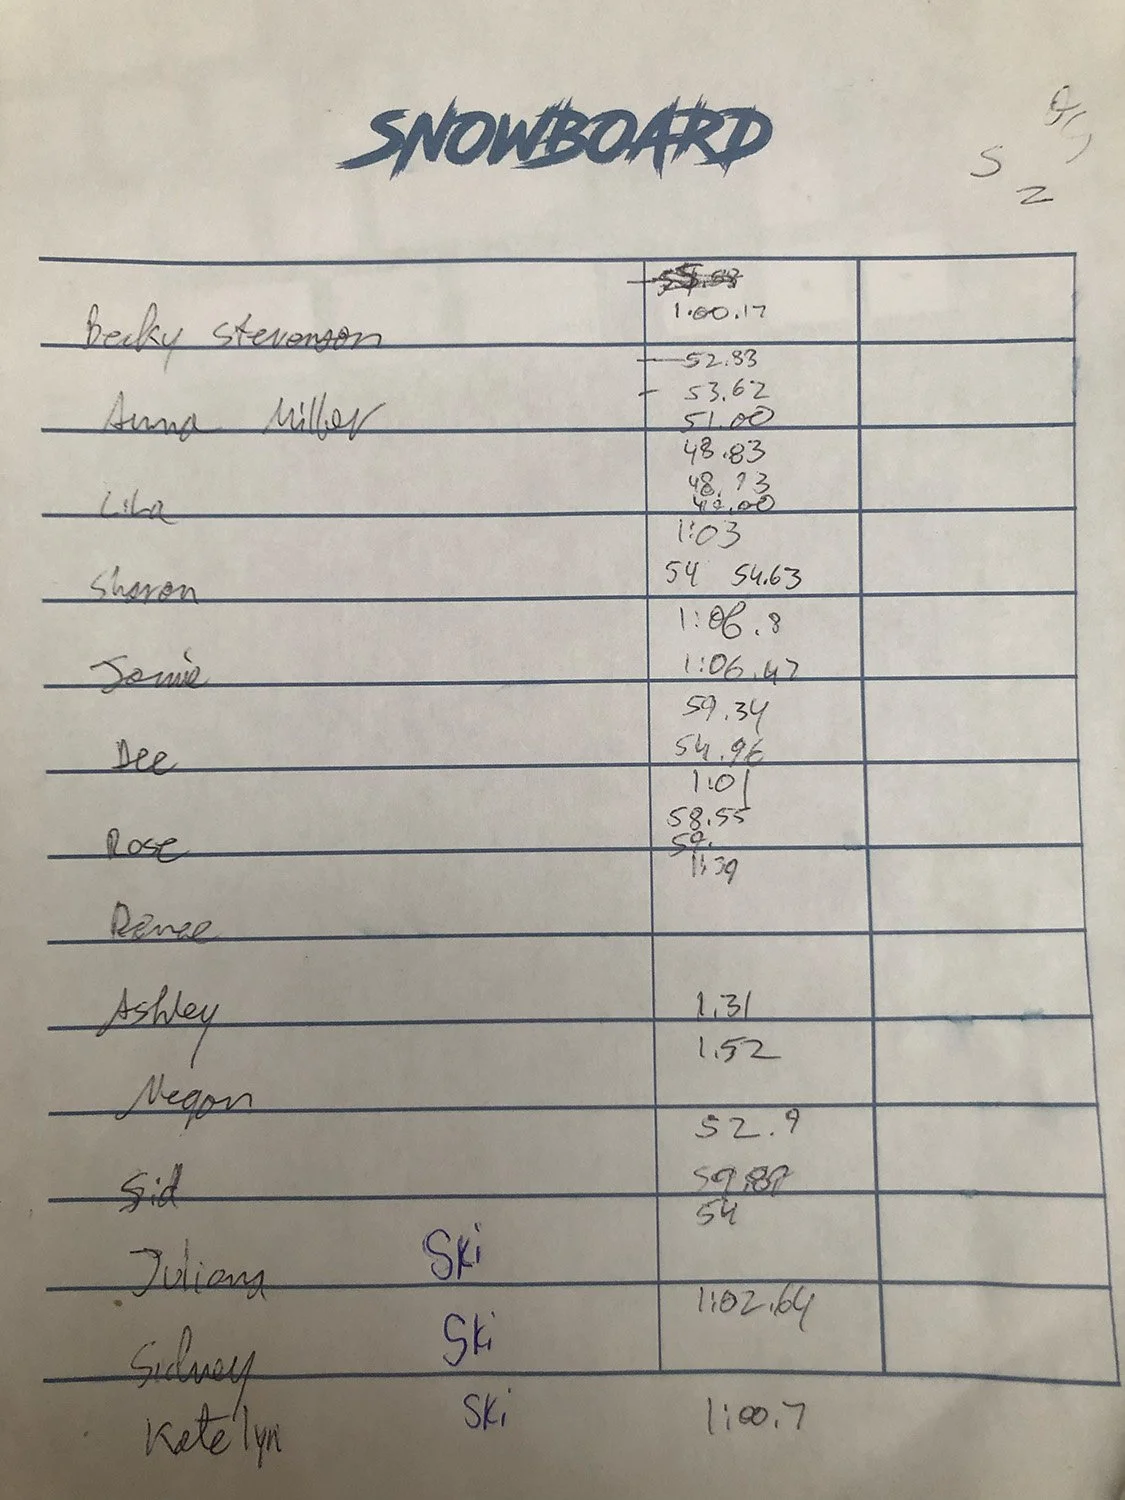 SNOWBOARD
S
2
Becky Stevenson
1.00.17
Anna Miller
52.83
53.62
51.00
Lila
48.83
48.73
49.00
Sharon
1:03
54 54.63
Jamie
1:06.8
1:06.47
Dee
59.34
54.96
Rose
1:01
58.55
59.
Renee
1:39
Ashley
1.31
Megan
1.52
Sid
52.9
59.87
Juliana Ski
54
Sidney Ski
1:02.64
Katelyn Ski 1:00.7